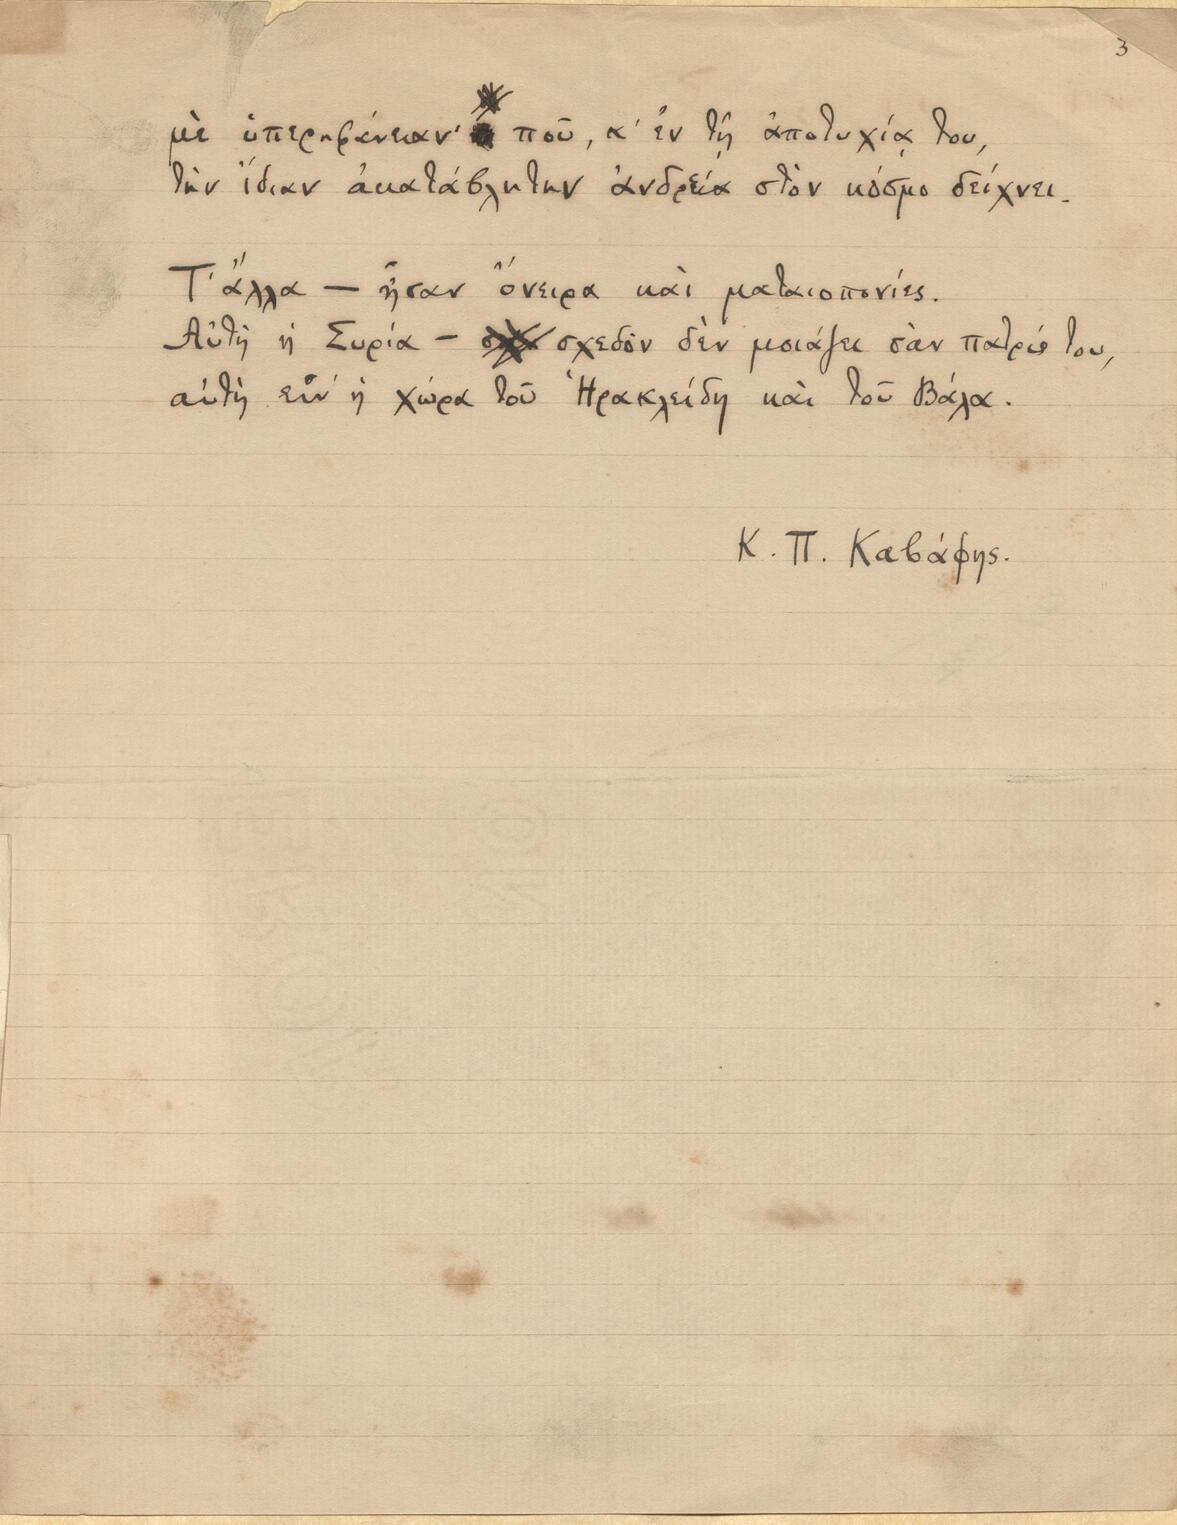 3
μὲ ὑπερηφάνειαν· ποῦ, κ' ἐν τῇ ἀποτυχίᾳ του,
τὴν ἴδιαν ἀκατάβλητην ἀνδρείᾳ στὸν κόσμο δείχνει.
Τ' ἄλλα — ἦσαν ὄνειρα καὶ ματαιοπονίες.
Αὐτὴ ἡ Συρία — σχεδὸν δὲν μοιάζει σὰν πατρίς του,
αὐτὴ εἶν' ἡ χώρα τοῦ Ἡρακλείδη καὶ τοῦ Βάλα.
Κ. Π. Καβάφης.